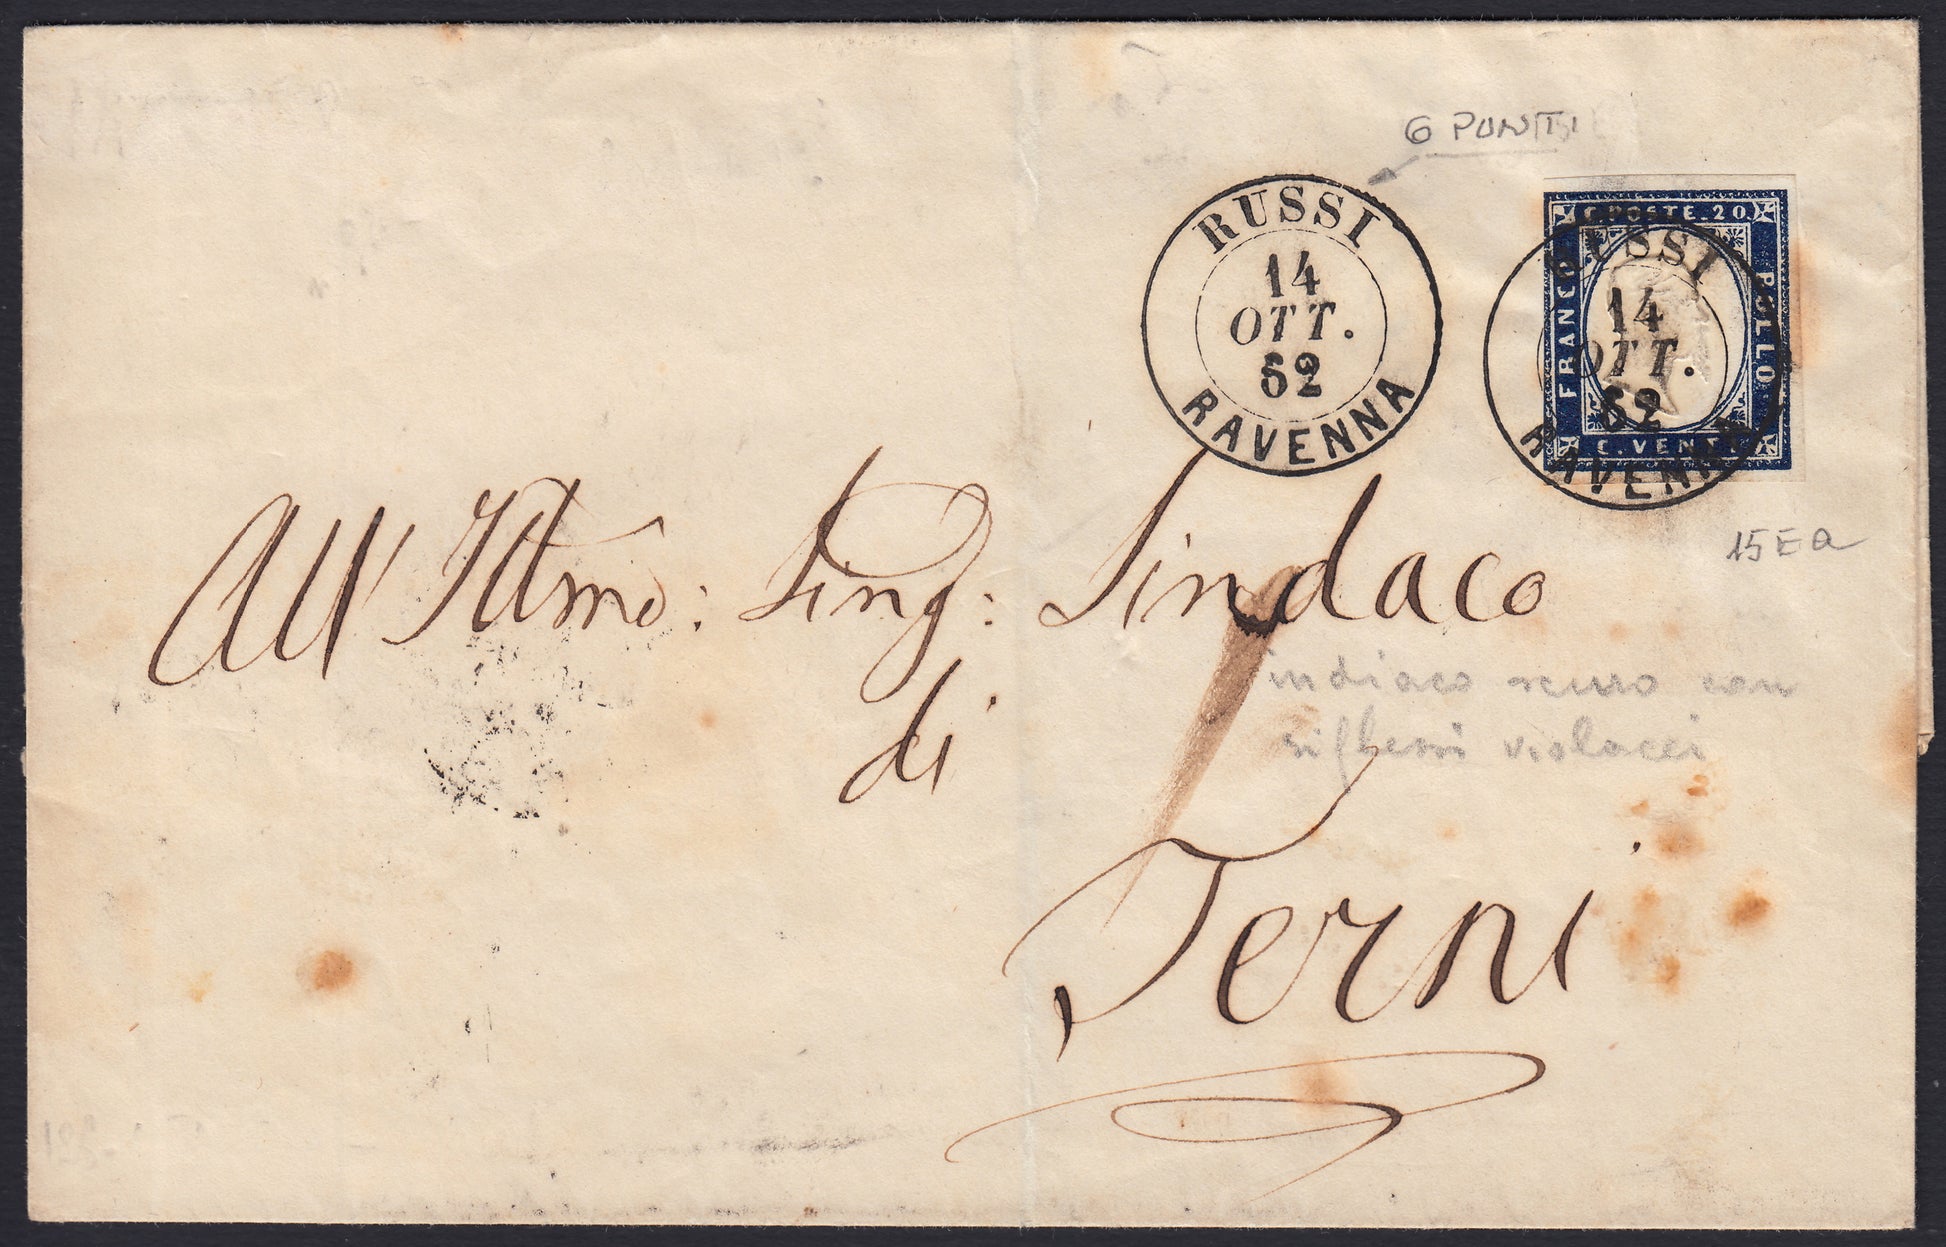 6 PUNTI
RUSSI
14
OTT.
62
RAVENNA
C. POSTE. 20
FRANCO
BOLLO
C. VENTI
RUSSI
14
OTT.
62
RAVENNA
15 E a
All' Illmo: Sing: Sindaco
indiaco scuro con
riflessi violacei
di
Terni